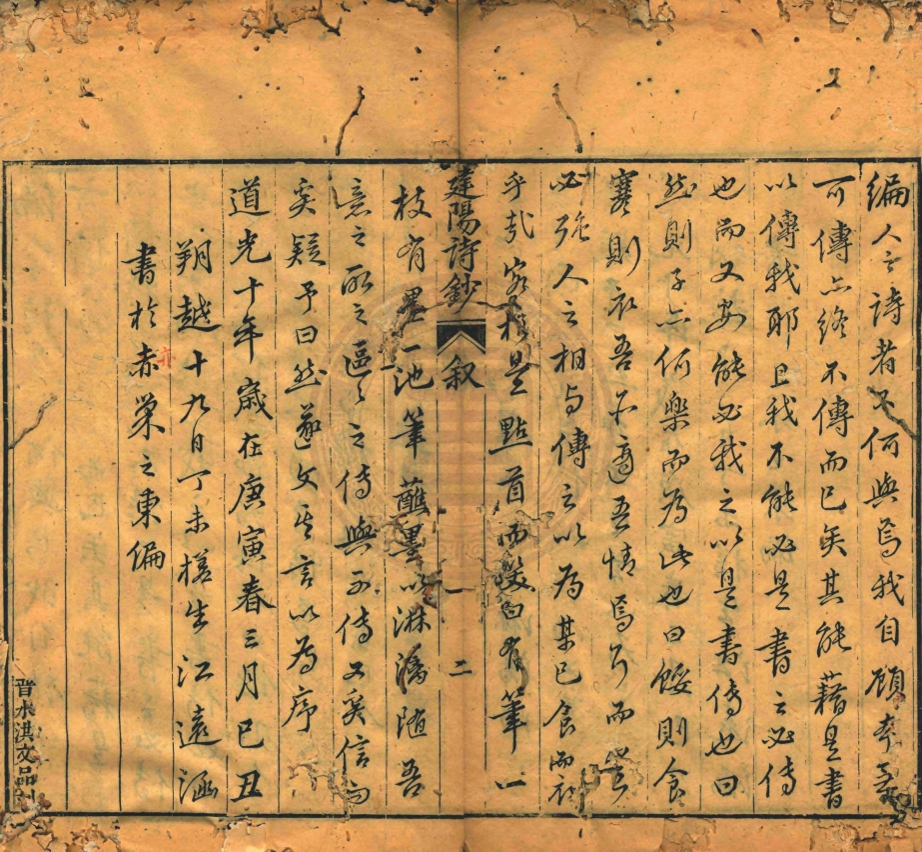 編人之詩者又何與焉我自顧本無
可傳亦終不傳而已矣其能藉是書
以傳我耶且我不能必是書之必傳
也而又安能必我之以是書傳也曰
然則子亦何樂而為此也曰餒則食
寒則衣吾不適吾情焉耳而豈
必強人之相与傳之以為某已食而衣
乎哉客於是點首而笑曰有筆一
莛陽詩鈔 叙 二
枝有墨一池筆蘸墨以淋漓隨吾
意之所之區區之傳與不傳又奚信而
奚疑予曰然遂文其言以為序
道光十年歲在庚寅春三月己丑
朔越十九日丁未槎生江遠涵
書於赤巢之東偏
晉水洪文品刻